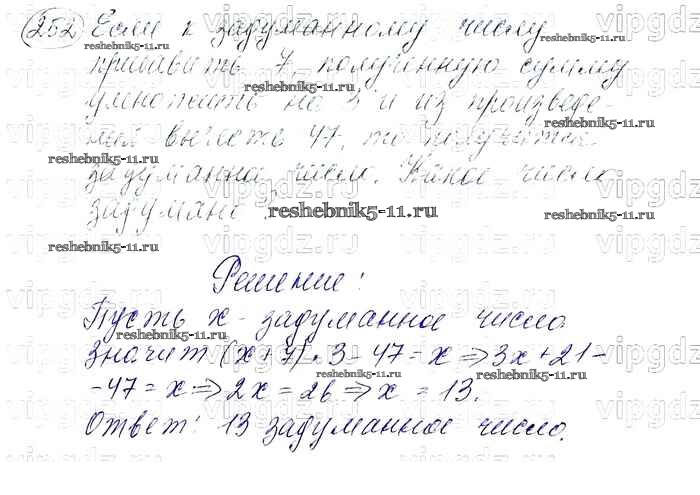 252 Если к задуманному числу
прибавить 7, полученную сумму
умножить на 3 и из произведе-
ния вычесть 47, то получится
задуманное число. Какое число
задумано?
Решение:
Пусть x - задуманное число.
Значит (x+7)·3-47=x⇒3x+21-
-47=x⇒2x=26⇒x=13.
Ответ: 13 задуманное число.
reshebnik5-11.ru
vipgdz.ru